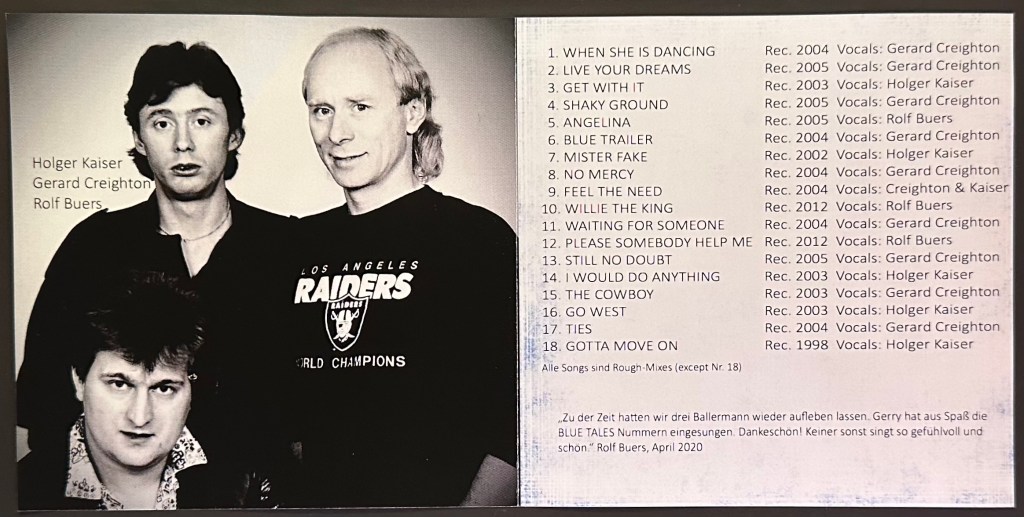 Holger Kaiser
Gerard Creighton
Rolf Buers
LOS ANGELES
RAIDERS
RAIDERS
WORLD CHAMPIONS
1. WHEN SHE IS DANCING Rec. 2004 Vocals: Gerard Creighton
2. LIVE YOUR DREAMS Rec. 2005 Vocals: Gerard Creighton
3. GET WITH IT Rec. 2003 Vocals: Holger Kaiser
4. SHAKY GROUND Rec. 2005 Vocals: Gerard Creighton
5. ANGELINA Rec. 2005 Vocals: Rolf Buers
6. BLUE TRAILER Rec. 2004 Vocals: Gerard Creighton
7. MISTER FAKE Rec. 2002 Vocals: Holger Kaiser
8. NO MERCY Rec. 2004 Vocals: Gerard Creighton
9. FEEL THE NEED Rec. 2004 Vocals: Creighton & Kaiser
10. WILLIE THE KING Rec. 2012 Vocals: Rolf Buers
11. WAITING FOR SOMEONE Rec. 2004 Vocals: Gerard Creighton
12. PLEASE SOMEBODY HELP ME Rec. 2012 Vocals: Rolf Buers
13. STILL NO DOUBT Rec. 2005 Vocals: Gerard Creighton
14. I WOULD DO ANYTHING Rec. 2003 Vocals: Holger Kaiser
15. THE COWBOY Rec. 2003 Vocals: Gerard Creighton
16. GO WEST Rec. 2003 Vocals: Holger Kaiser
17. TIES Rec. 2004 Vocals: Gerard Creighton
18. GOTTA MOVE ON Rec. 1998 Vocals: Holger Kaiser
Alle Songs sind Rough-Mixes (except Nr. 18)
„Zu der Zeit hatten wir drei Ballermann wieder aufleben lassen. Gerry hat aus Spaß die
BLUE TALES Nummern eingesungen. Dankeschön! Keiner sonst singt so gefühlvoll und
schön.“ Rolf Buers, April 2020